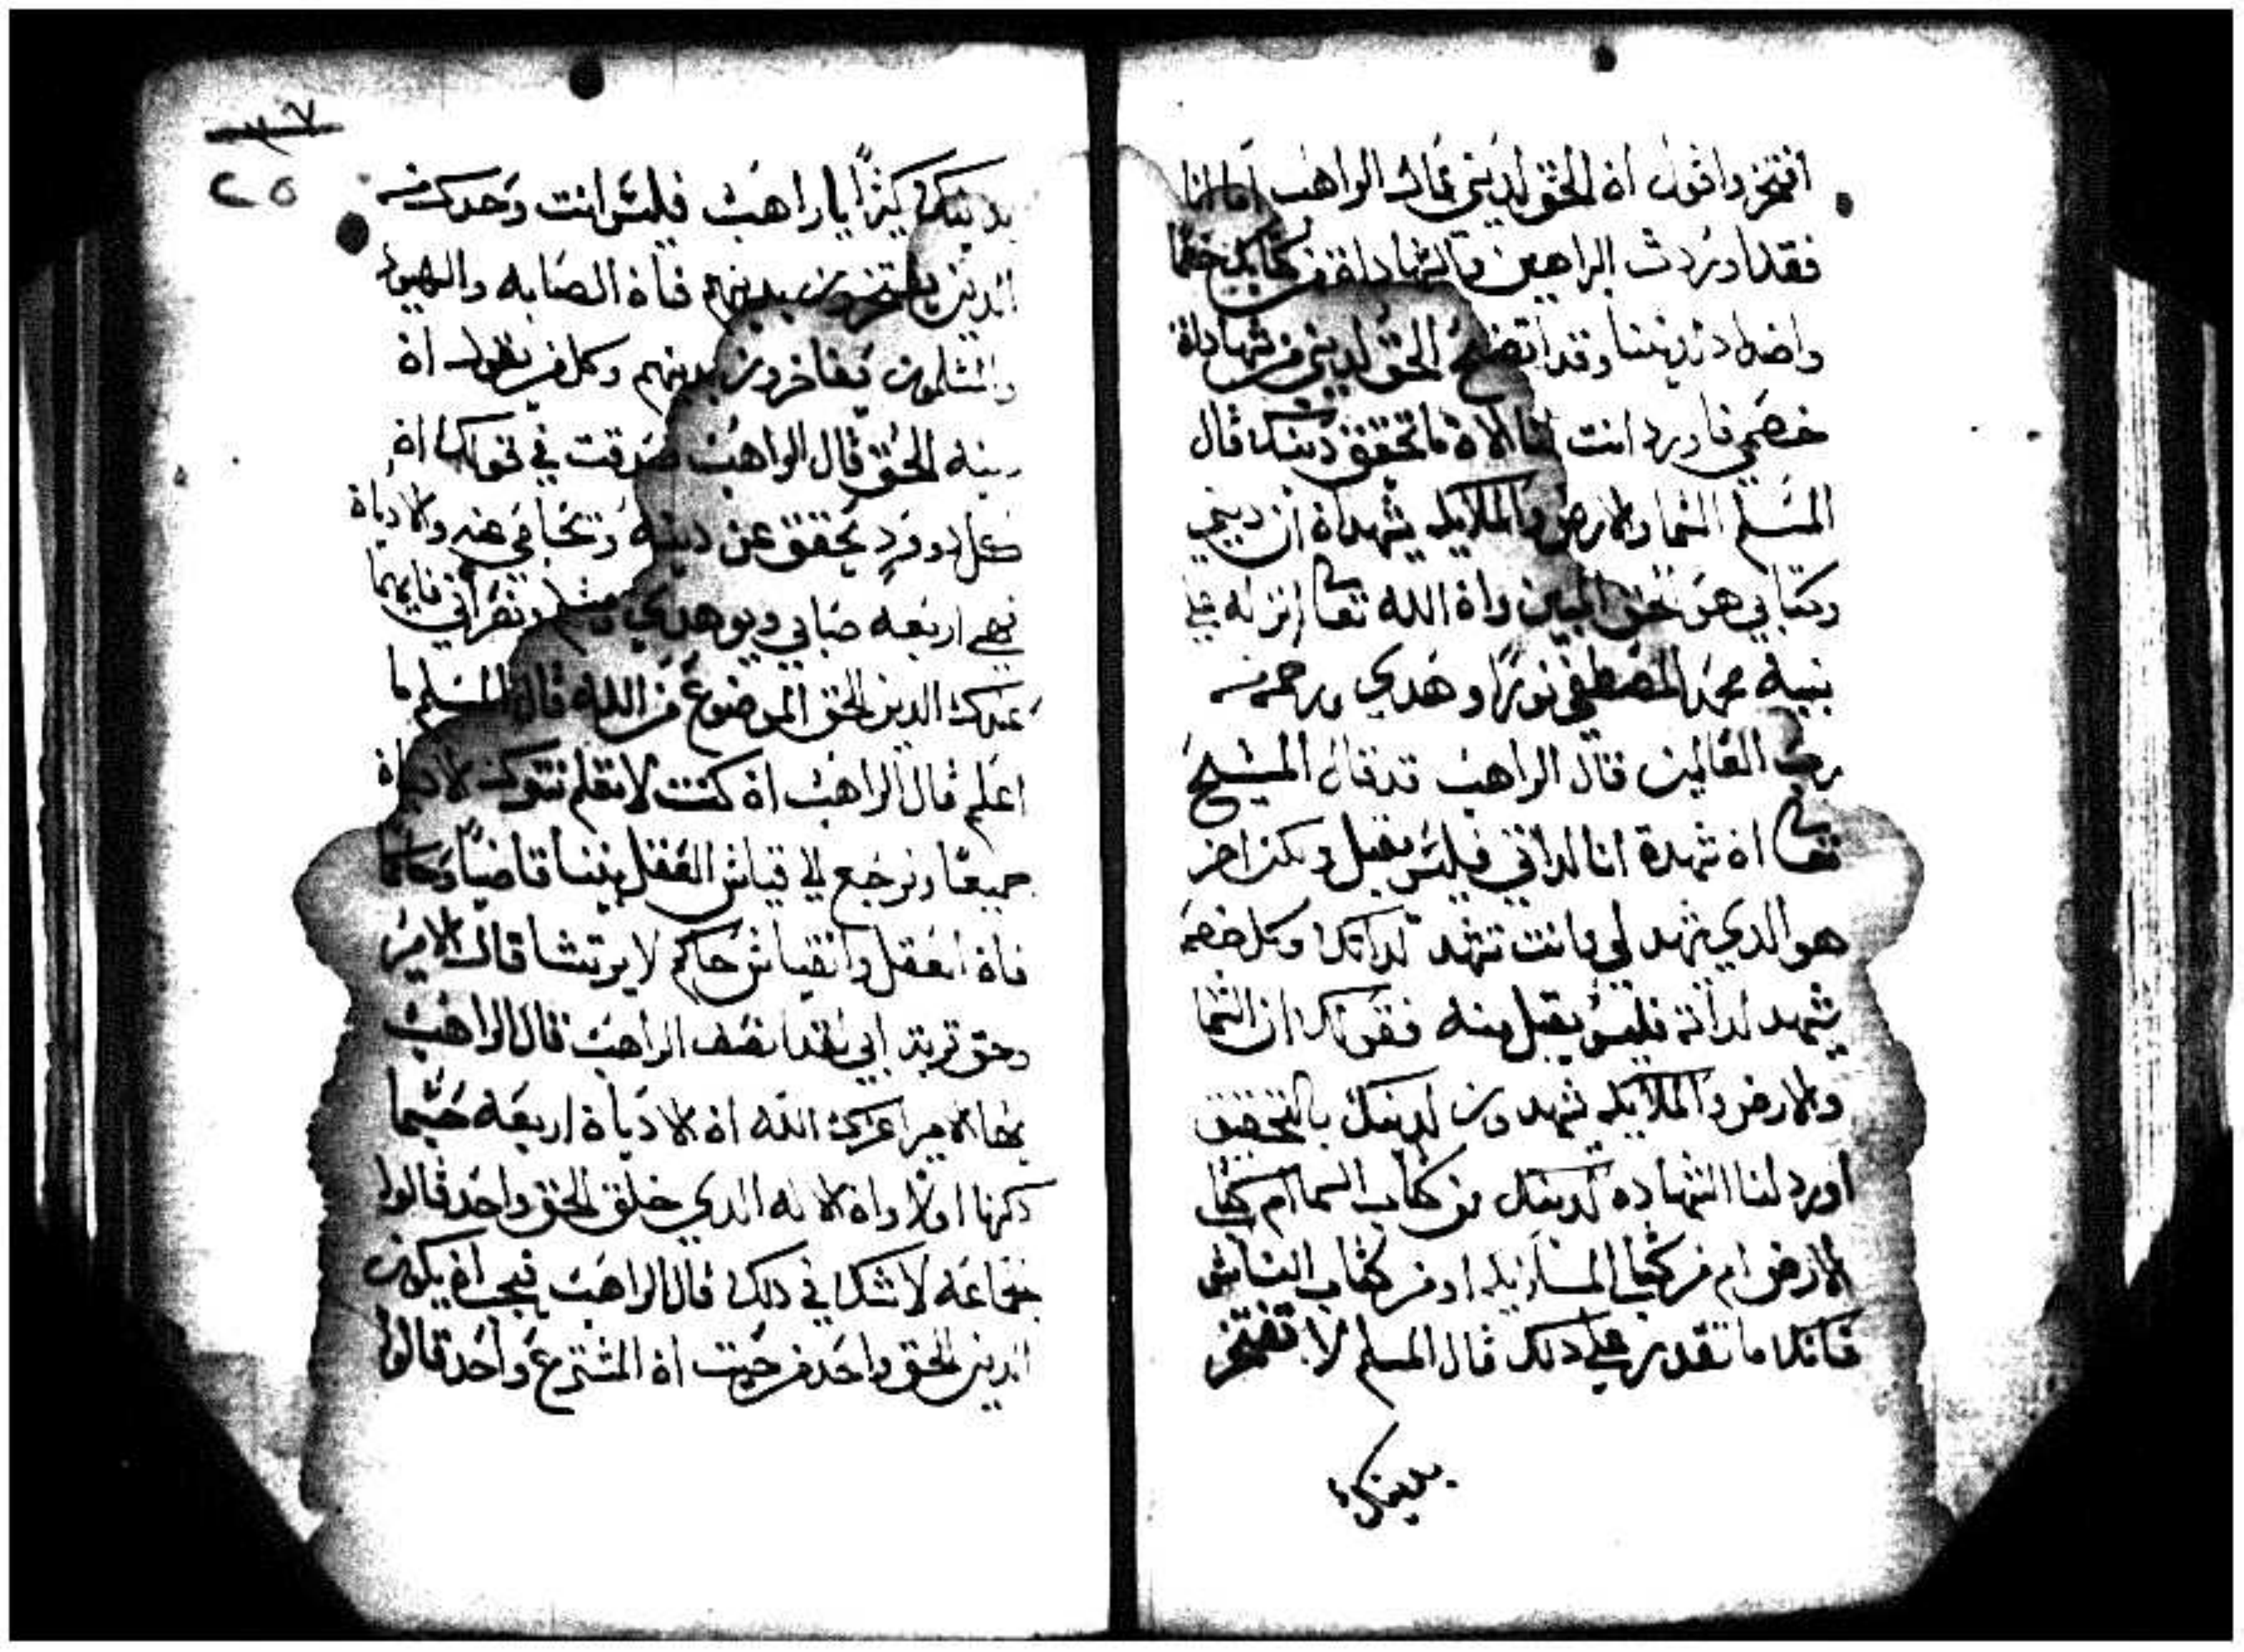 افتخر واقول ان الحق لديني قال الراهب اما انا
فقد اوردت البراهين والشهاداة من كتابك خصما
واضداد ديننا وقد اتضح الحق لديني من شهاداة
خصمي فاورد انت لنا الان ما تحقق دينك قال
المسلم السما والارض والملايكه يشهداة ان ديني
وكتابي هو حق اليقين وان الله تعالى انزله على
نبيه محمد المصطفى نورًا وهدى ورحمه من
رب العالمين قال الراهب قد قال المسيح
تعالى ان شهدة انا لداتي فليس تقبل ولكن اخر
هو الدي يشهد لي وانت تشهد لداتك وكل خصم
يشهد لداته فليس يقبل منه فقولك ان السما
والارض والملايكه يشهدون لدينك بالتحقيق
اورد لنا الشهاده لدينك من كتاب السما ام كتاب
الارض ام من كتاب الملايكه او من كتاب الناس
فانك ما تقدر على دلك قال المسلم لا تفتخر
بدينك
٢٥
بدينك كثيرًا يا راهب فليس انت وحدك من
الدين يفتخرون بدينهم فان الصابه واليهود
والمسلمون يفاخرون بدينهم وكل من يقول ان
دينه الحق قال الراهب صدقت في قولك ان
كل فرد يحقق عن دينه وتحامي عنه والادياة
فهي اربعه صابي ويوهدي ومسلم ونصراني فايهما
عندك الدين الحق الموضوع من الله قال المسلم ما
اعلم قال الراهب ان كنت لا تعلم نتوك الادياة
جميعًا ونرجع الى قياس العقل بيننا قاضيًا وحاكما
فان العقل والقياس حاكم لا يرتشا قال الامير
وحق تربة ابي لقد انصف الراهب قال الراهب
ايها الامير اعزك الله ان الادياة اربعه حسبما
دكرنا اولا وان الاله الدي خلق الحق واحد قالوا
جماعه لا شك في دلك قال الراهب فيجب ان يكون
الدين الحق واحد من حيت ان المشترع واحد قالوا